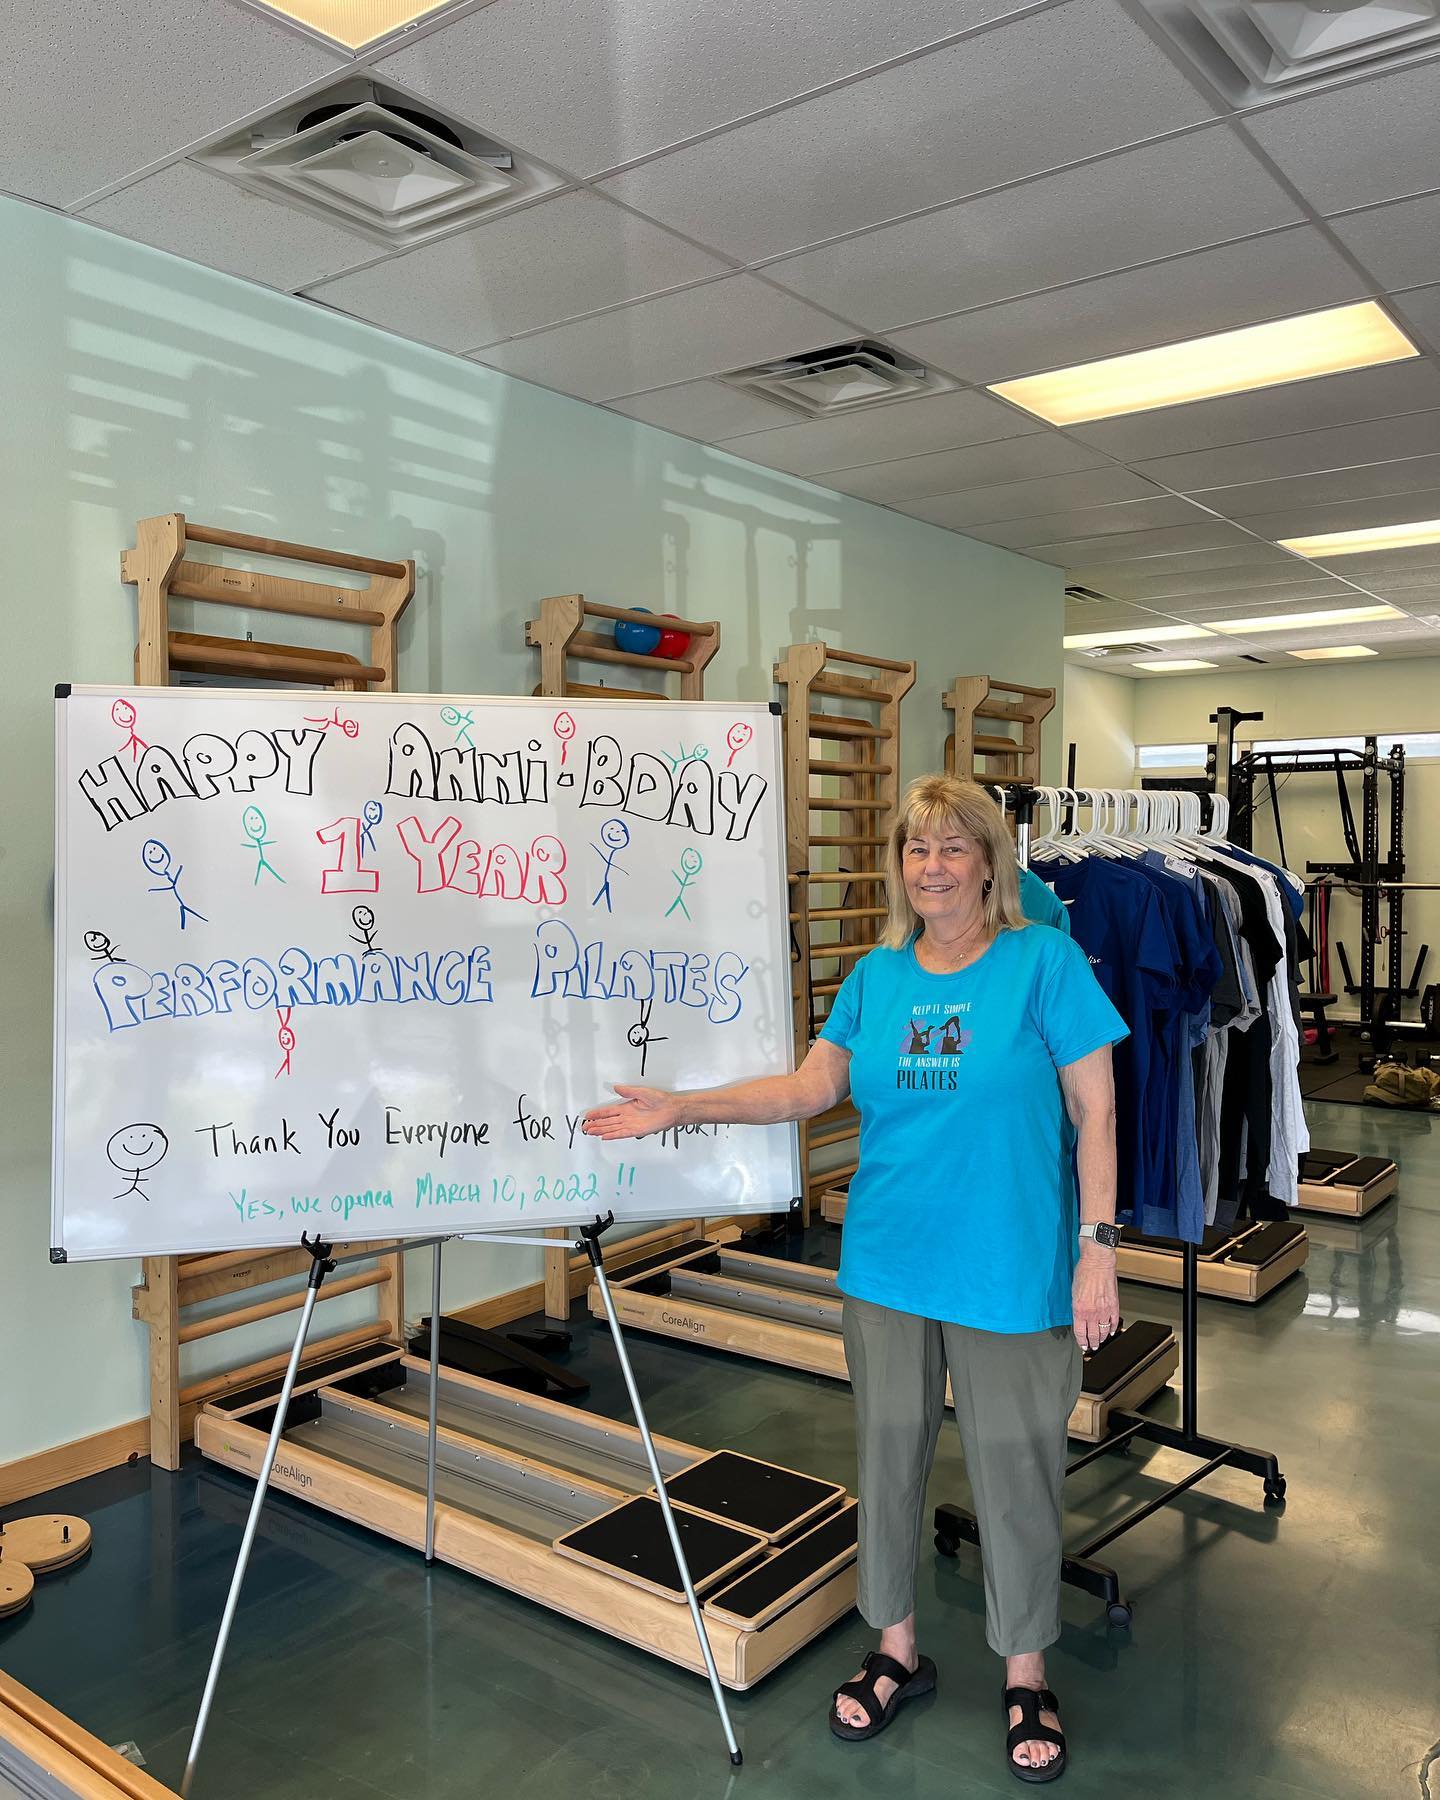 HAPPY ANNI-BDAY
1 YEAR
PERFORMANCE PILATES
Thank You Everyone for support!
YES, we opened MARCH 10, 2022 !!
KEEP IT SIMPLE
THE ANSWER IS
PILATES
CoreAlign
CoreAlign